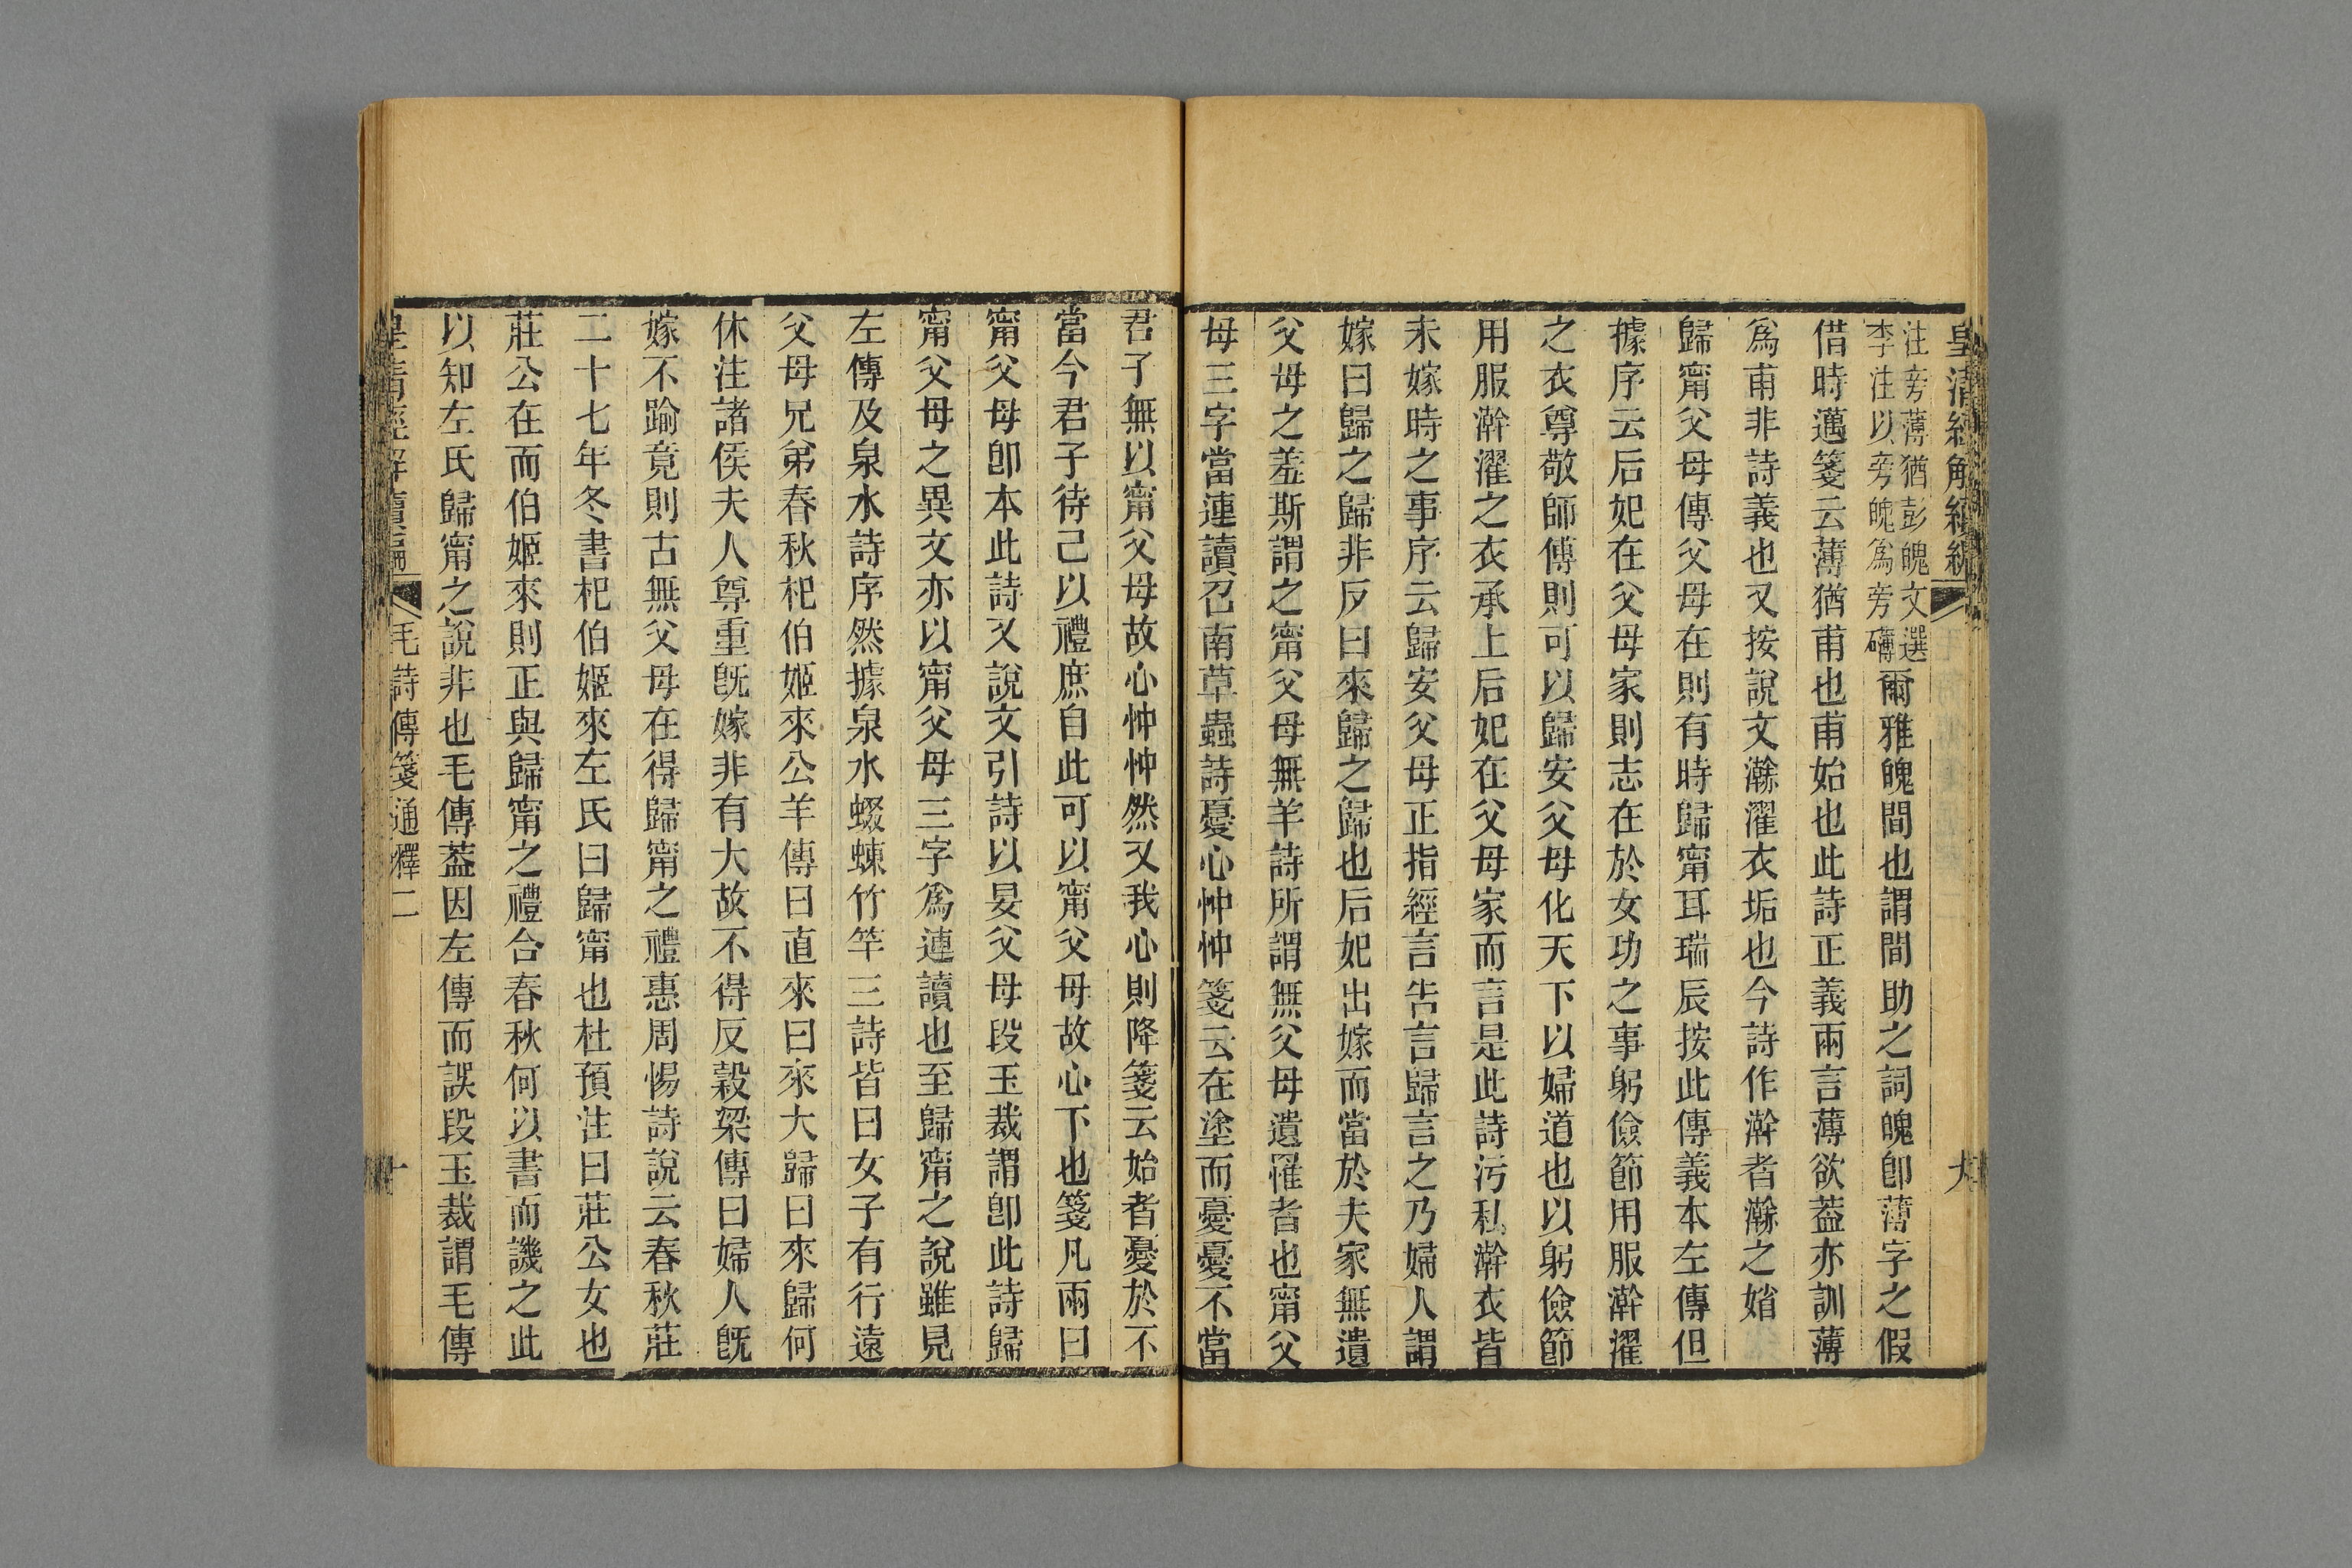 皇清經解續編
注旁薄猶彭魄文選
李注以旁魄爲旁礡
爾雅魄間也謂間助之詞魄卽薄字之假
借時邁箋云薄猶甫也甫始也此詩正義兩言薄欲葢亦訓薄
爲甫非詩義也又按說文瀚濯衣垢也今詩作澣者瀚之媘
歸甯父母傳父母在則有時歸甯耳瑞辰按此傳義本左傳但
據序云后妃在父母家則志在於女功之事躬儉節用服澣濯
之衣尊敬師傅則可以歸安父母化天下以婦道也以躬儉節
用服澣濯之衣承上后妃在父母家而言是此詩污私澣衣皆
未嫁時之事序云歸安父母正指經言吿言歸言之乃婦人謂
嫁曰歸之歸非反曰來歸之歸也后妃出嫁而當於夫家無遺
父母之羞斯謂之甯父母無羊詩所謂無父母遺罹者也甯父
母三字當連讀召南草蟲詩憂心忡忡箋云在塗而憂憂不當
君子無以甯父母故心忡忡然又我心則降箋云始者憂於不
當今君子待己以禮庶自此可以甯父母故心下也箋凡兩曰
甯父母卽本此詩又說文引詩以晏父母段玉裁謂卽此詩歸
甯父母之異文亦以甯父母三字爲連讀也至歸甯之說雖見
左傳及泉水詩序然據泉水蝃蝀竹竿三詩皆曰女子有行遠
父母兄弟春秋杞伯姬來公羊傳曰直來曰來大歸曰來歸何
休注諸侯夫人尊重旣嫁非有大故不得反穀梁傳曰婦人旣
嫁不踰竟則古無父母在得歸甯之禮惠周惕詩說云春秋莊
二十七年冬書杞伯姬來左氏曰歸甯也杜預注曰莊公女也
莊公在而伯姬來則正與歸甯之禮合春秋何以書而譏之此
以知左氏歸甯之說非也毛傳葢因左傳而誤段玉裁謂毛傳
皇清經解續編 毛詩傳箋通釋二 十